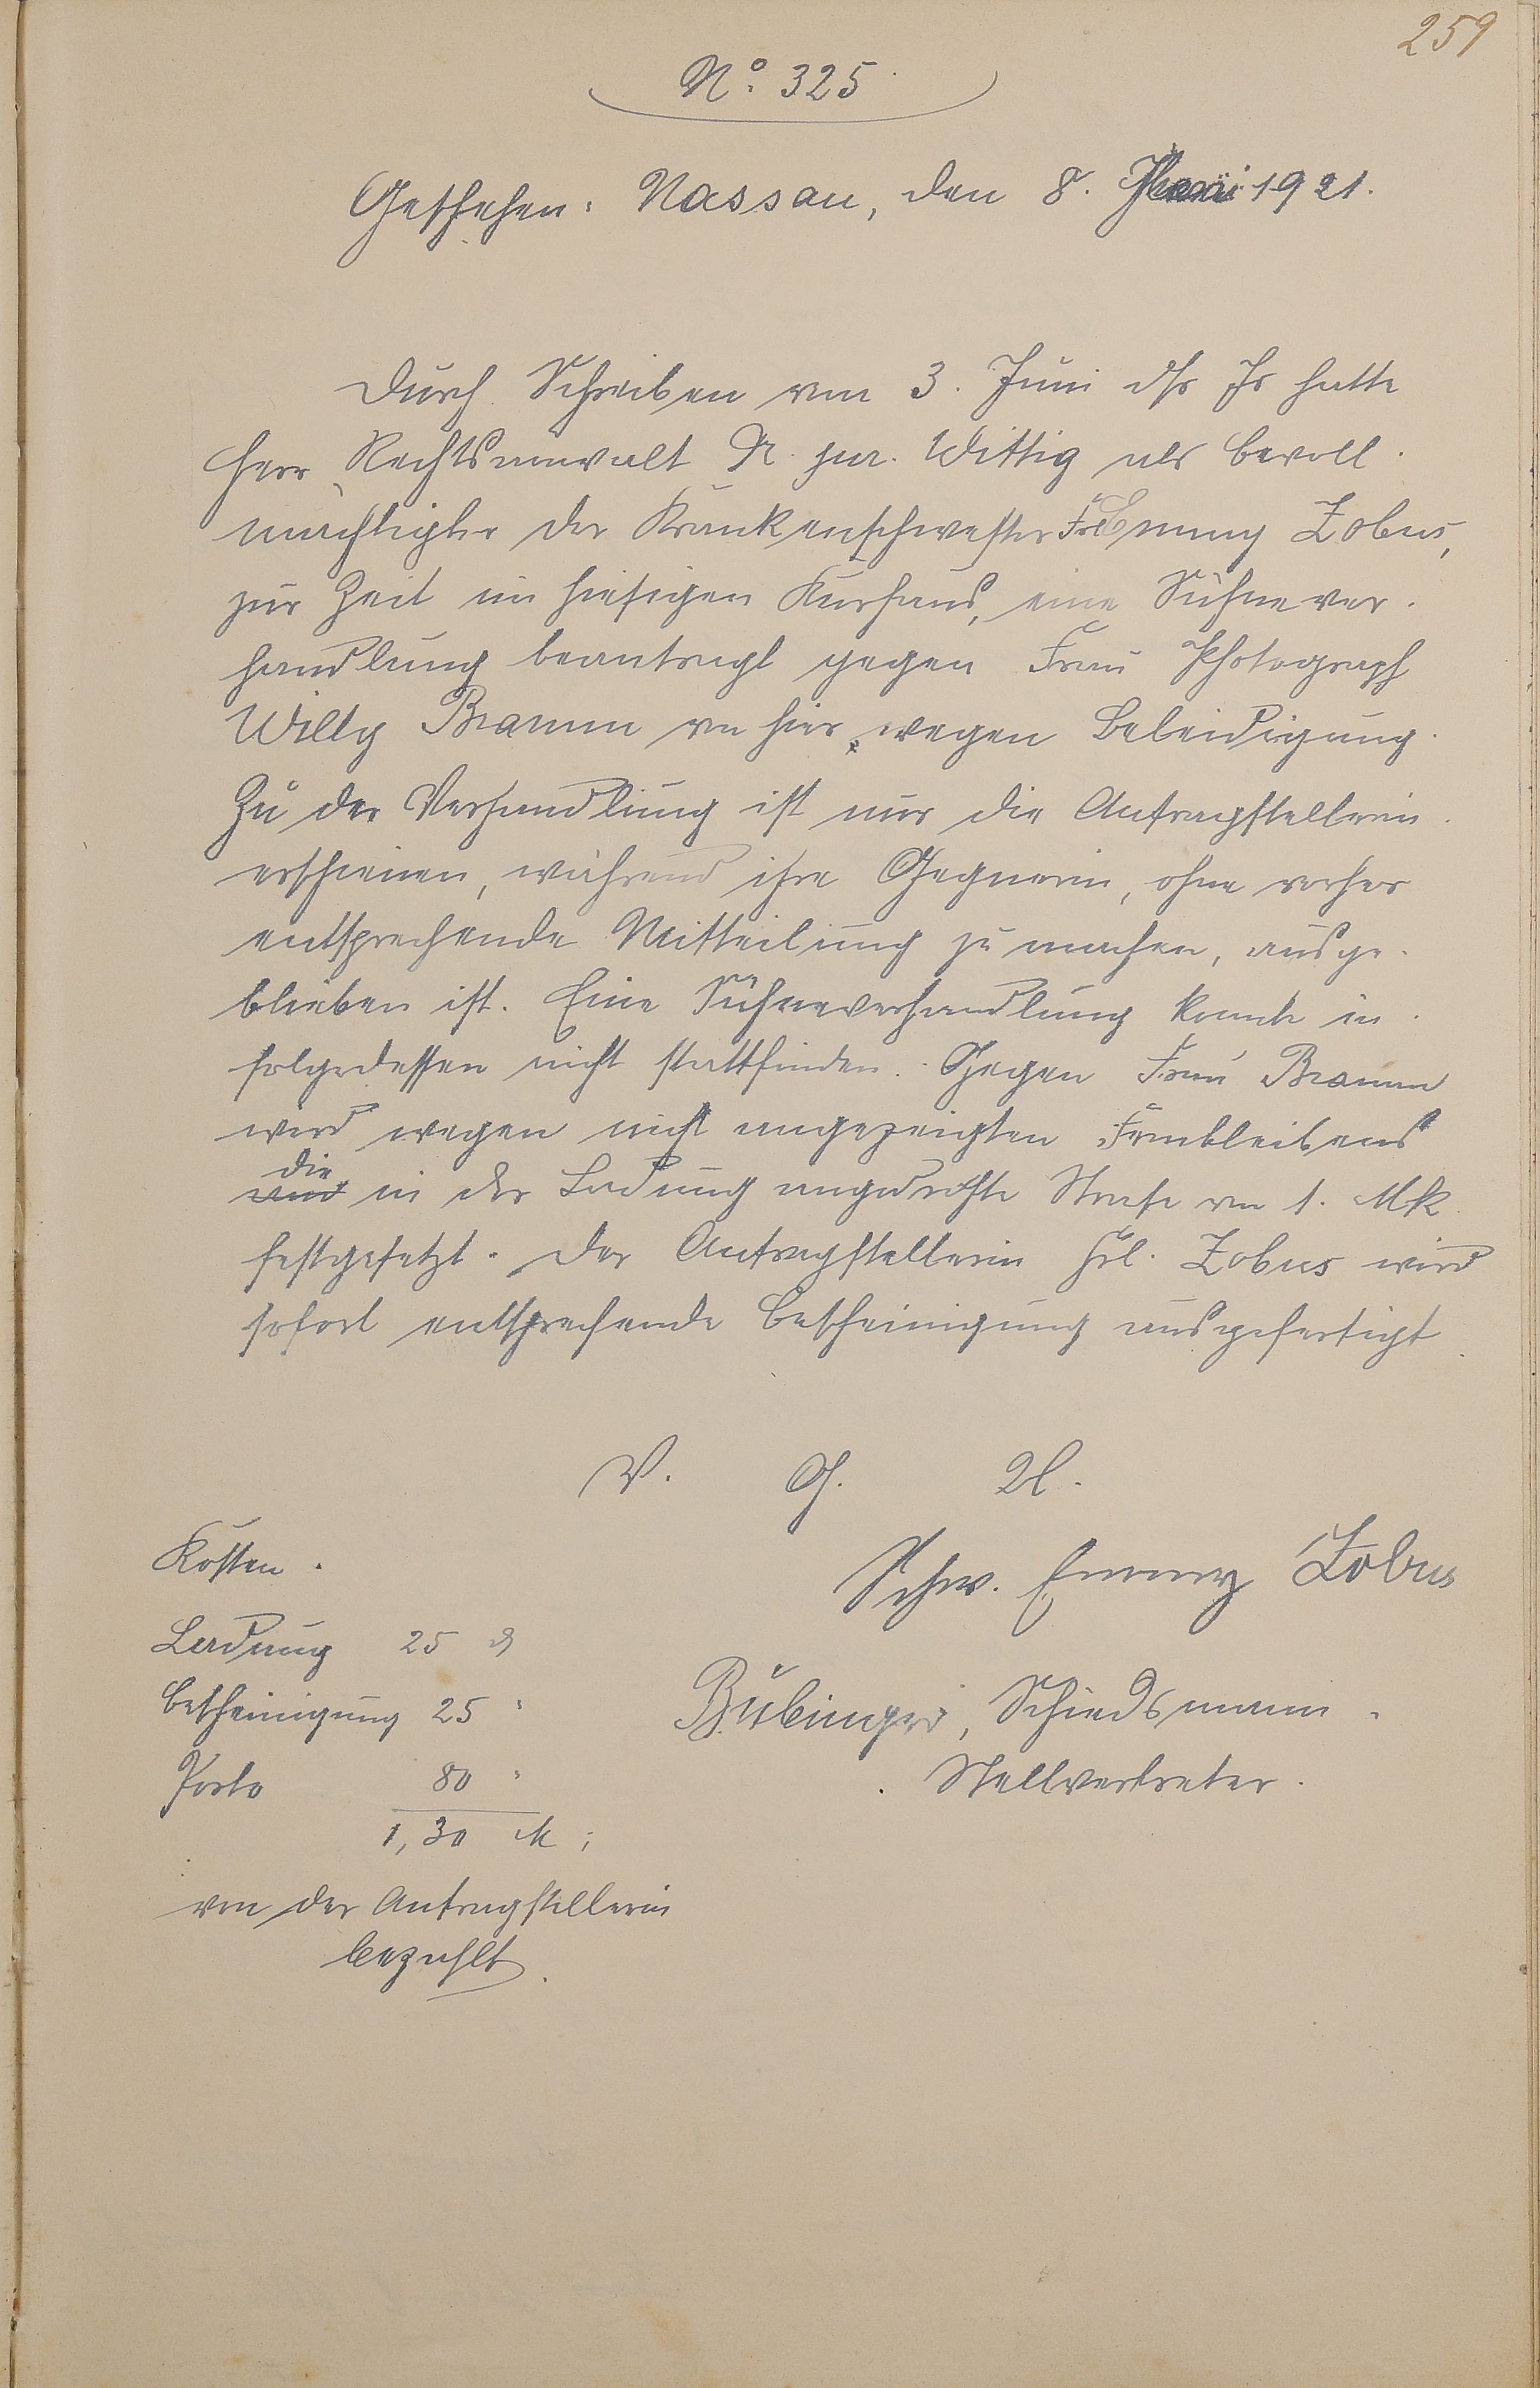 259
No. 325
Geschehen: Nassau, den 8. Juni 1921.
Durch Schreiben vom 3. Juni ds Js hatte
Herr Rechtsanwalt Dr. jur. Wittig als Bevoll-
mächtigter der Krankenschwester Frl Emmy Zobus,
zur Zeit im hiesigen Kurhaus, eine Sühnever-
handlung beantragt gegen Frau Photograph
Willy Bramm von hier, wegen Beleidigung.
Zu der Verhandlung ist nur die Antragstellerin
erschienen, während ihre Gegnerin, ohne vorher
entsprechende Mitteilung zu machen, ausge-
blieben ist. Eine Sühneverhandlung konnte in-
folgedessen nicht stattfinden. Gegen Frau Bramm
wird wegen nicht angezeigten Fernbleibens
die
und in der Ladung angedrohte Strafe von 1. Mk.
festgesetzt. Der Antragstellerin Frl. Zobus wird
sofort entsprechende Bescheinigung ausgefertigt.
V. G. U.
Kosten.
Schw. Emmy Zobus
Ladung 25 ₰
Bescheinigung 25 "
Bübinger, Schiedsmann-
Porto 80 "
Stellvertreter.
1,30 M;
von der Antragstellerin
bezahlt.